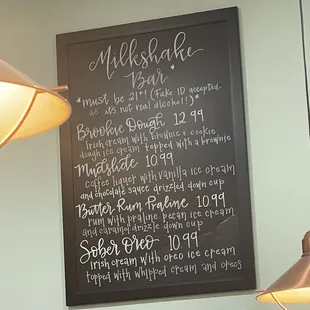 Milkshake
Bar
*must be 21+! (Fake ID accepted
as it's not real alcohol!)*
Brookie Dough 12.99
Irish cream with brownie + cookie
dough ice cream topped with a brownie
Mudslide 10.99
coffee liquer with vanilla ice cream
and chocolate sauce drizzled down cup
Butter Rum Praline 10.99
rum with praline pecan ice cream
and caramel drizzle down cup
Sober Oreo 10.99
Irish cream with oreo ice cream
topped with whipped cream and oreos